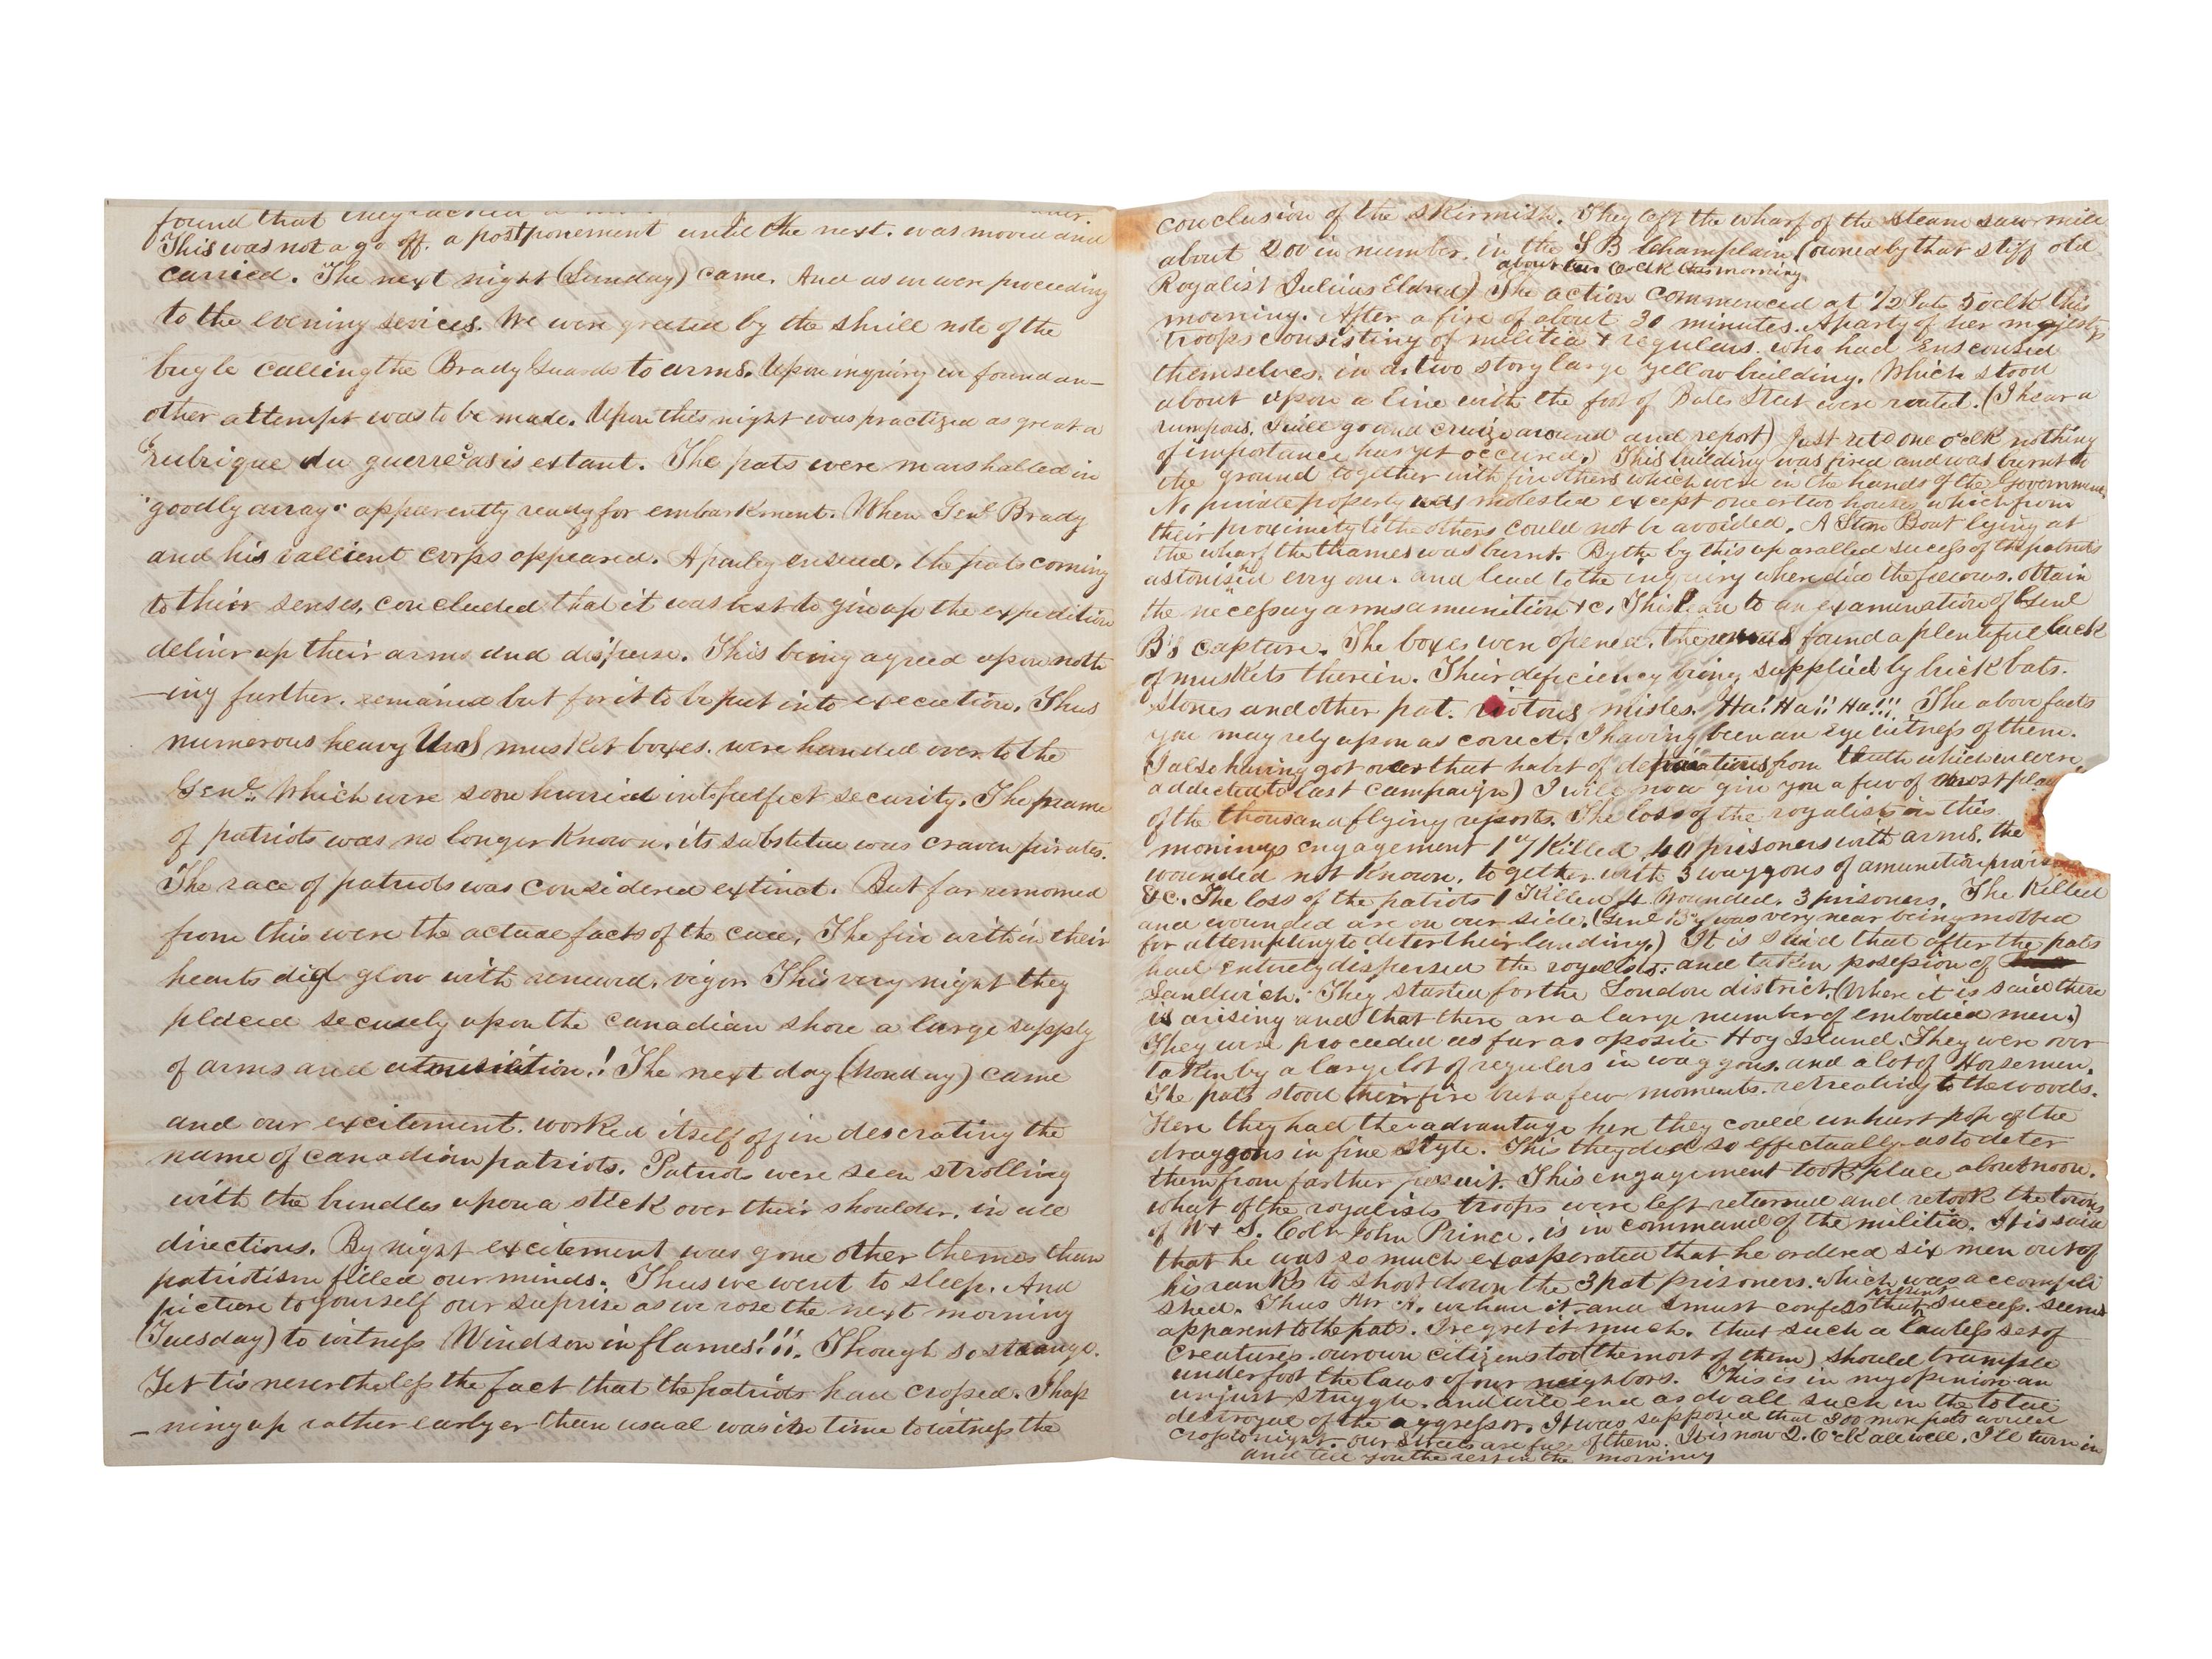 found that they lacked
This was not a go off. a postponement until the next. was moved and
carried. The next night (Sunday) came. And as we were proceeding
to the evening sevices. We were greeted by the shrill note of the
bugle calling the Brady Guards to arms. Upon inquiry we found an-
other attempt was to be made. Upon this night was practized as great a
"rubrique du guerre" as is extant. The pats were marshalled in
"goodly array" apparently ready for embarkment. When Genl Brady
and his vallient corps appeared. A parley ensued. the pats coming
to their senses, concluded that it was best to give up the expedition
deliver up their arms and disperse. This being agreed upon noth
-ing further. remained but for it to be put into execution. Thus
numerous heavy U.S musket boxes. were handed over to the
Genl. Which were soon hurried into perfect security. The name
of patriots was no longer known. its substitue was craven pirates.
The race of patriots was considered extinct. But far removed
from this were the actual facts of the case. The fire within their
hearts did glow with renewed. vigor This very night they
placed securely upon the canadian shore a large supply
of arms and amunition.! The next day (Monday) came
and our excitement. worked itself off in descrating the
name of canadian patriots. Patriots were seen strolling
with the bundles upon a stick over their shoulder. in all
directions. By night excitement was gone other themes than
patriotism filled our minds. Thus we went to sleep. And
picture to yourself our suprise as we rose the next morning
(Tuesday) to witness Windsor in flames!!!. Though so strange.
Yet tis nevertheless the fact that the patriots had crossed. I hap
-ning up rather earlyer then usual was in time to witness the
conclusion of the skirmish. They left the wharf of the steam saw mill
about 200 in number. in the S B Champlain, (owned by that stiff old
about two O clk this morning
Royalist Julius Eldred) The action commenced at 1/2 past 5 oclk this
morning. After a fire of about 30 minutes. A party of her majestys
troops consisting of militia & regulars. who had ensconsed
themselves. in a two story large yellow building. Which stood
about upon a line with the foot of Bates Street were routed. (I hear a
rumpus. I will go and cruize around and report) Just retd one oclk nothing
of importance has yet occured.) This building was fired and was burnt to
the ground together with five others which were in the hands of the Government
No private property was molested except one or two houses which from
their proximety to the others could not be avoided. A Stem Boat lying at
the wharf the thames was burnt. By the by this uparalled sucess of the patriots
astonished evry one. and lead to the inquiry where did the fellows. obtain
the necessary arms amunition &c. This lead to an examination of Genl
B's capture. The boxes were opened. there was found a plentiful lack
of muskets therein. Their deficiency being supplied by brick bats.
Stones and other pat. riotous misles. Ha! Ha!! Ha!!! The above facts
you may rely upon as correct. I having been an eye witness of them.
(I also having got over that habit of deviations from truth which we were
addicted to last campaign) I will now give you a few of most plau
of the thousand flying reports. The loss of the royalists in this
mornings engagement 17 killed 40 prisoners with arms. the
wounded not known. together with 3 waggons of amunition provisions
&c. The loss of the patriots 1 killed 4 wounded. 3 prisoners. The killed
and wounded are on our side. (Genl By was very near being mobbed
for attempting to deter their landing.) It is said that after the pats
had entirely dispersed the royalists. and taken possesion of
Sandwich. They started for the London district. (Where it is said there
is arising and that there are a large number of embodied men.)
They were proceeded as far as oposite Hog Island. They were over
taken by a large lot of regulars in waggons. and a lot of Horsemen.
The pats stood their fire but a few moments. retreating to the woods.
Here they had the advantage here they could unhurt pop of the
draggons in fine style. This they did so effectually as to deter
them from farther persuit. This engagement took place about noon.
what of the royalists troops were left returned and retook the towns
of W & S. Coln John Prince. is in command of the militia. It is said
that he was so much exasperated that he ordered six men out of
his ranks to shoot down the 3 pat prisoners. which was accompli
present
shed. Thus Mr A. we have it and I must confess that success. seems
apparent to the pats. I regret it much. that such a lawless set of
creatures. our own citizens too (the most of them) should trample
underfoot the laws of our neighbors. This is in my opinion an
unjust struggle. and will end as do all such in the total
destroyal of the aggressor. It was supposed that 300 more pats would
cross to night. our streets are full of them. It is now 2. Oclk all well. I'll turn in
and tell you the rest in the morning